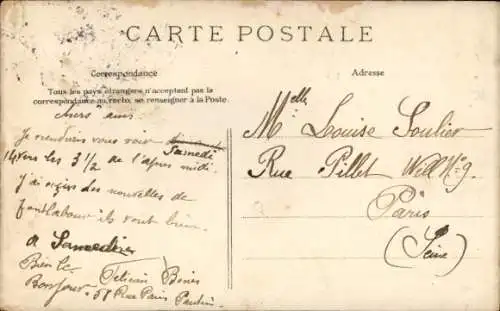 CARTE POSTALE
Correspondance
Tous les pays étrangers n'acceptent pas la
correspondance au recto, se renseigner à la Poste
chers amis
Je viendrais vous voir
Samedi
14 vers les 3 1/2 de l'après midi.
J'ai reçus des nouvelles de
ils vont bien
a Samedi
Bien le
Bonjour
58 Rue Paris Pantin
Adresse
Melle Louise Soulier
Rue Pillet Will No 9
Paris
(Seine)